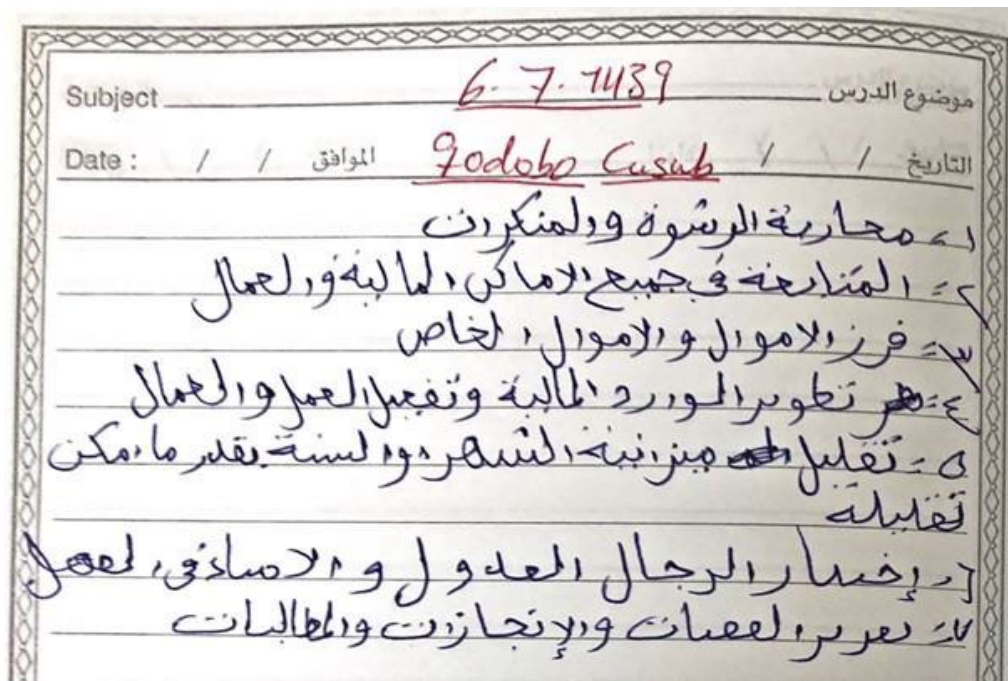 Subject 6.7.1439 موضوع الدرس
Date : / / الموافق Qodobo Cusub / / التاريخ
١- محاربة الرشوة والمنكرات
٢- المتابعة في جميع الاماكن المالية والعمال
٣- فرز الاموال والاموال الخاص
٤- تطوير المورد المالية وتفعيل العمل والعمال
٥- تقليل ميزانية الشهر والسنة بقدر ما امكن
تقليله
٦- إختيار الرجال العدول و الامناء في العمل
٧- والإنجازات والمطالبات